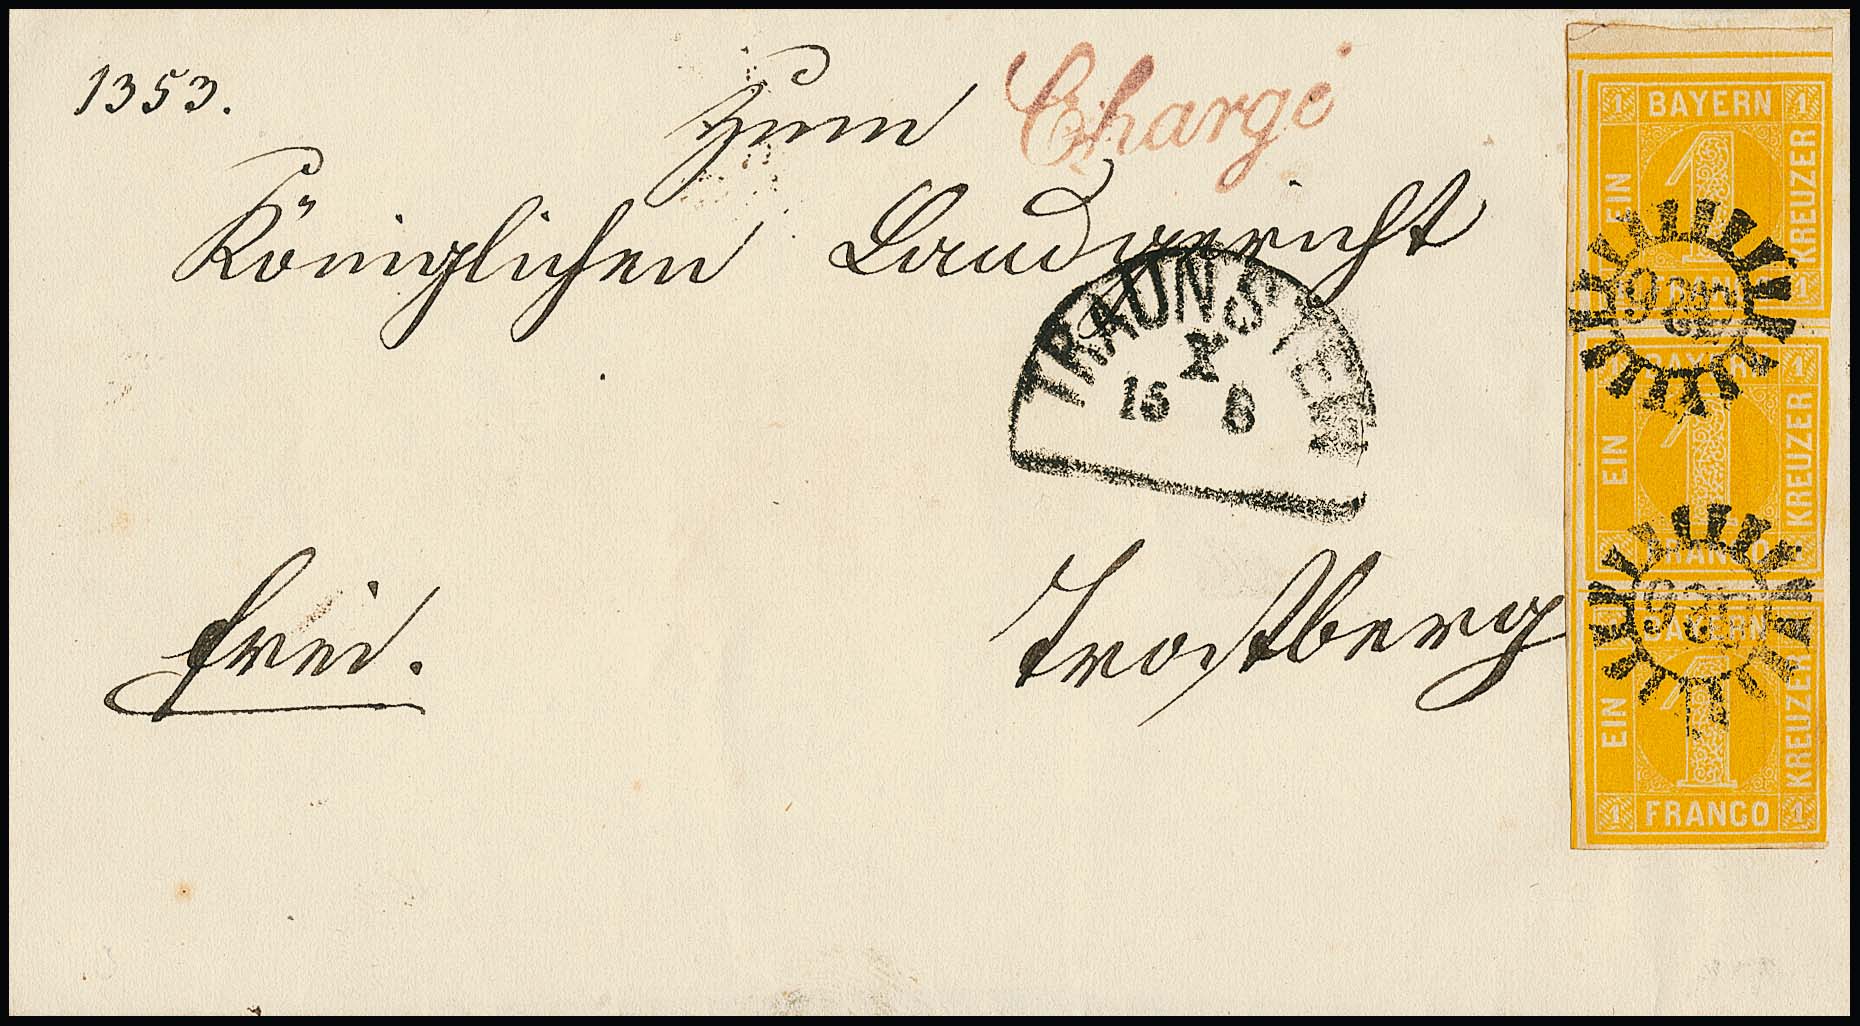 1353.
Zum
Chargé
Königlichen Landgericht
TRAUNSTEIN
X
15 8
frei.
Trostberg
1 BAYERN 1
EIN
KREUZER
1
1
BAYERN 1
EIN
KREUZER
1
FRANCO
BAYERN
EIN
KREUZER
1
1 FRANCO 1